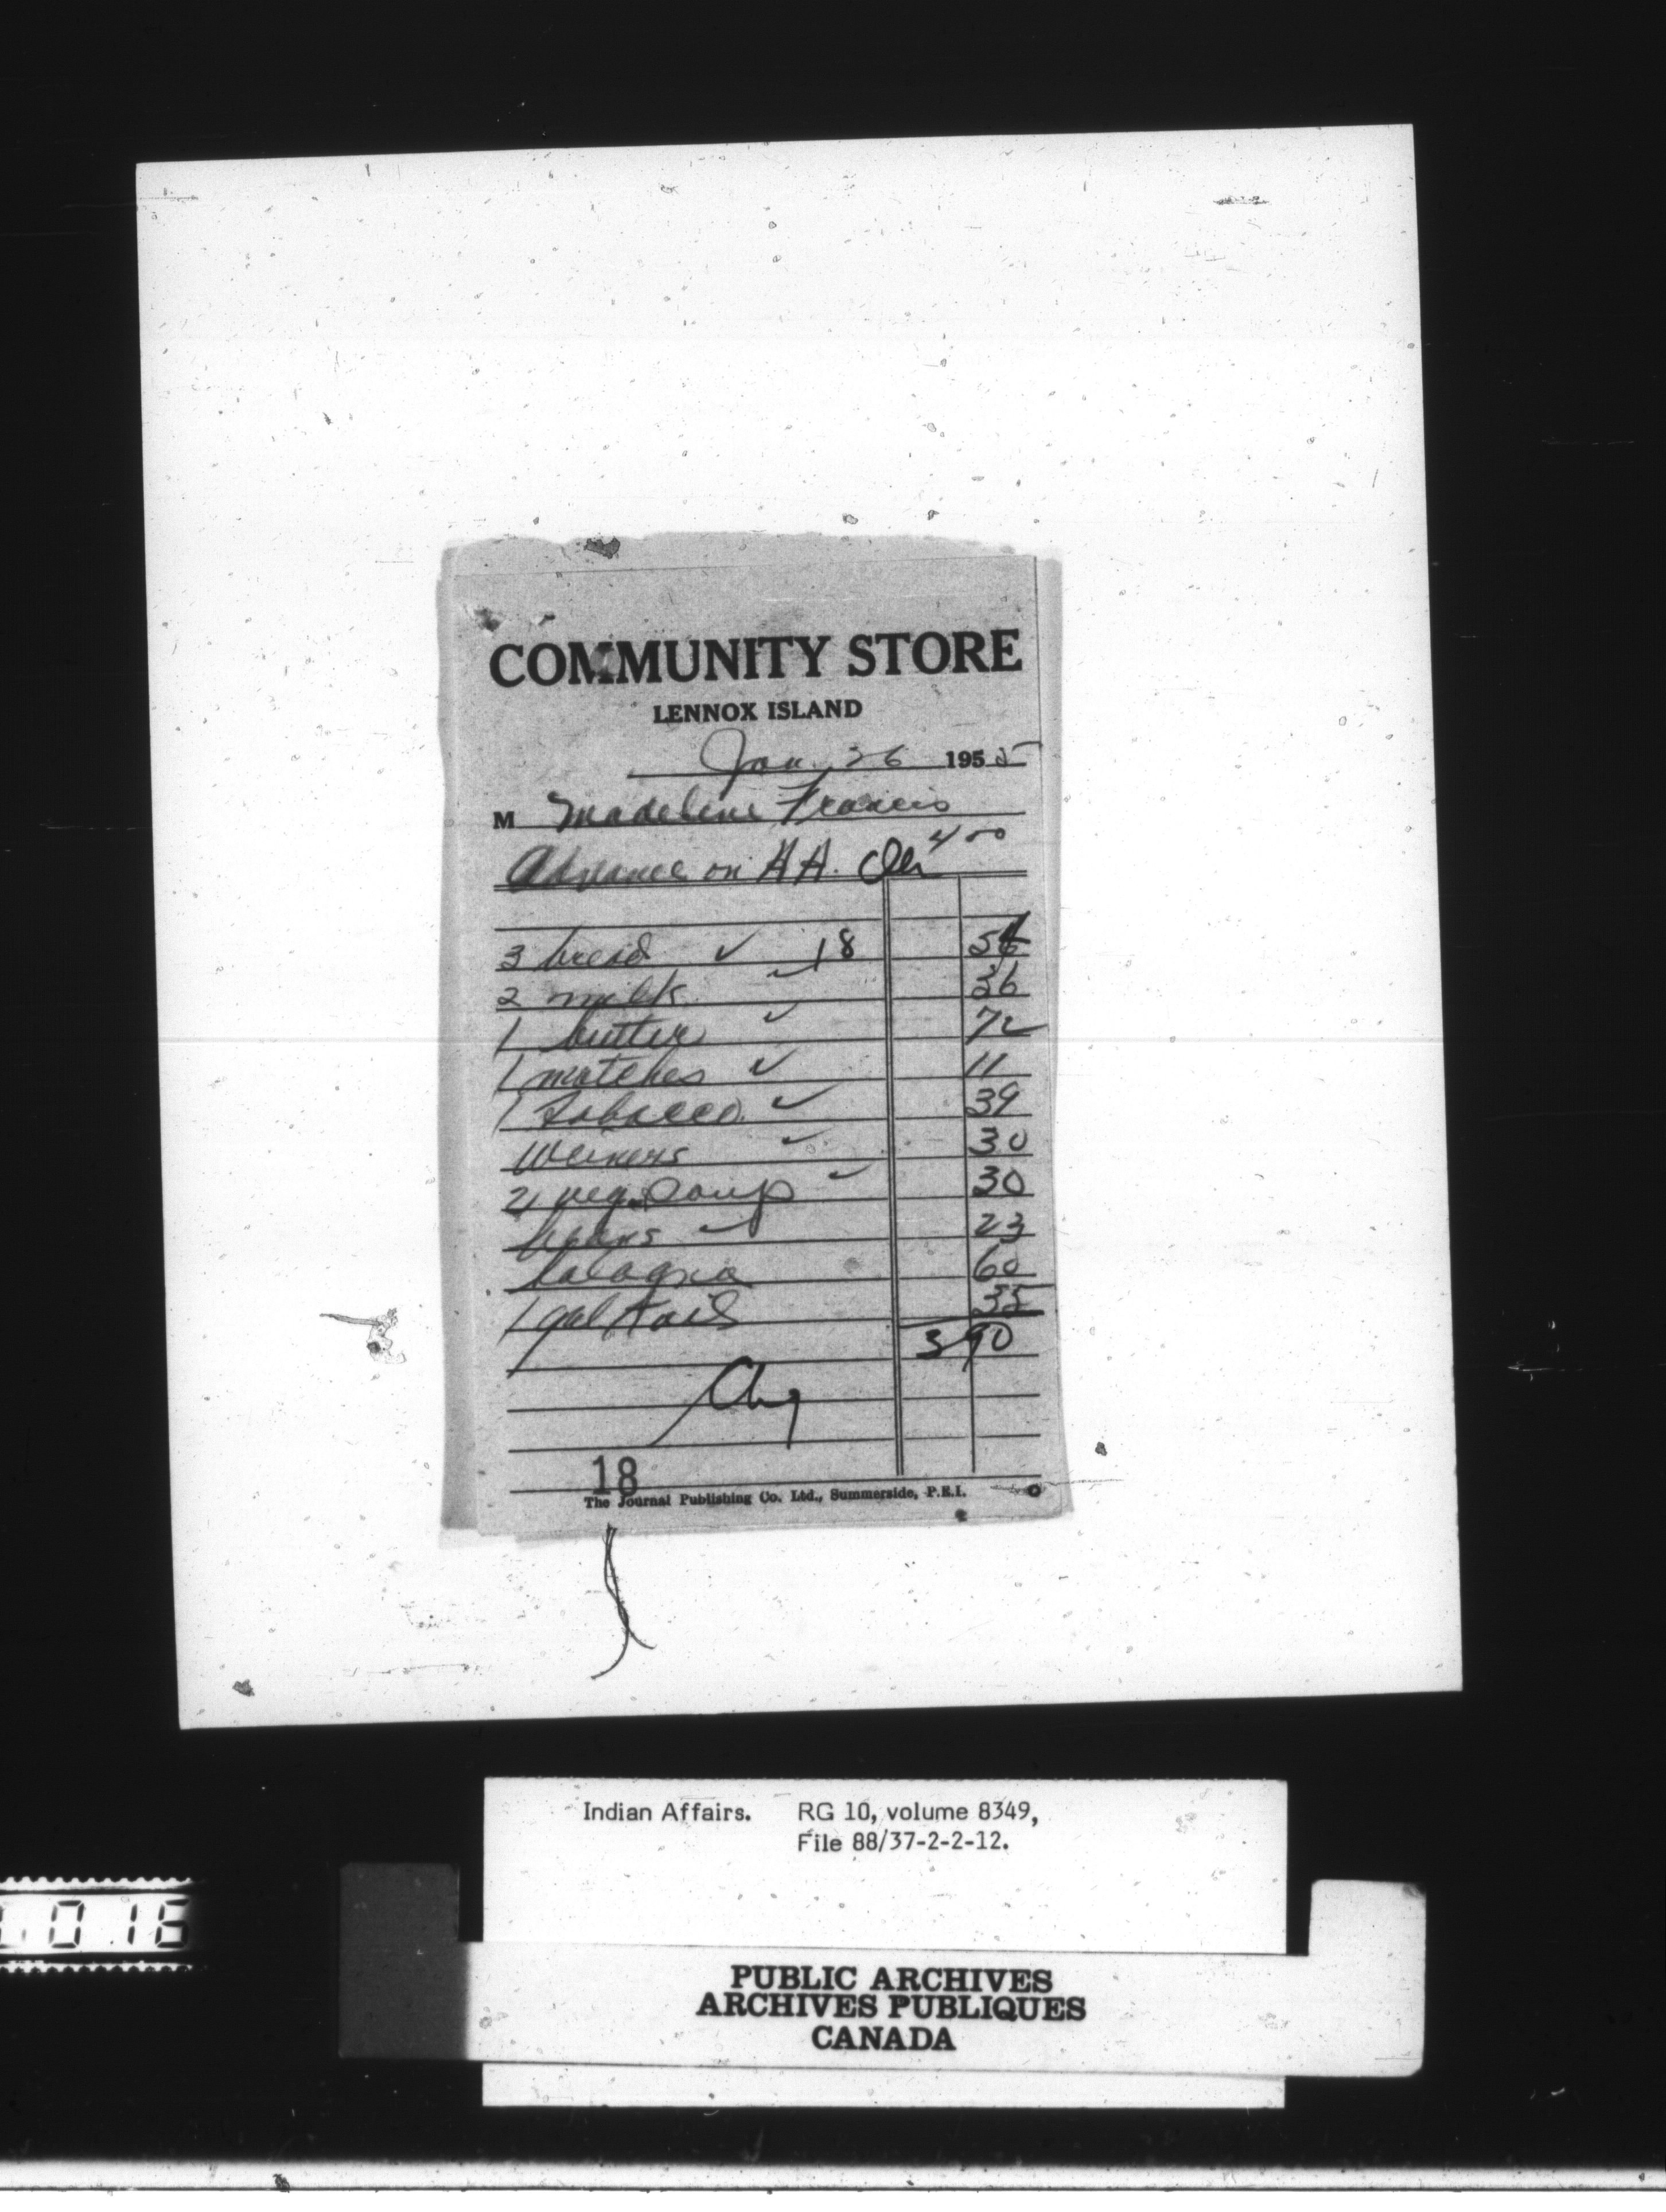 COMMUNITY STORE
LENNOX ISLAND
Jan. 26 1955
M Madeline Francis
Advance on A A. 4 00
3 bread ✓ 18 54
2 milk ✓ 36
1 butter ✓ 72
1 matches ✓ 11
1 Tobacco ✓ 39
Weiners ✓ 30
2 veg. Soup ✓ 30
beans ✓ 23
balagna 60
1 gal K oil 35
3 90
Chg
18
The Journal Publishing Co. Ltd., Summerside, P.E.I.
Indian Affairs. RG 10, volume 8349,
File 88/37-2-2-12.
0 16
PUBLIC ARCHIVES
ARCHIVES PUBLIQUES
CANADA